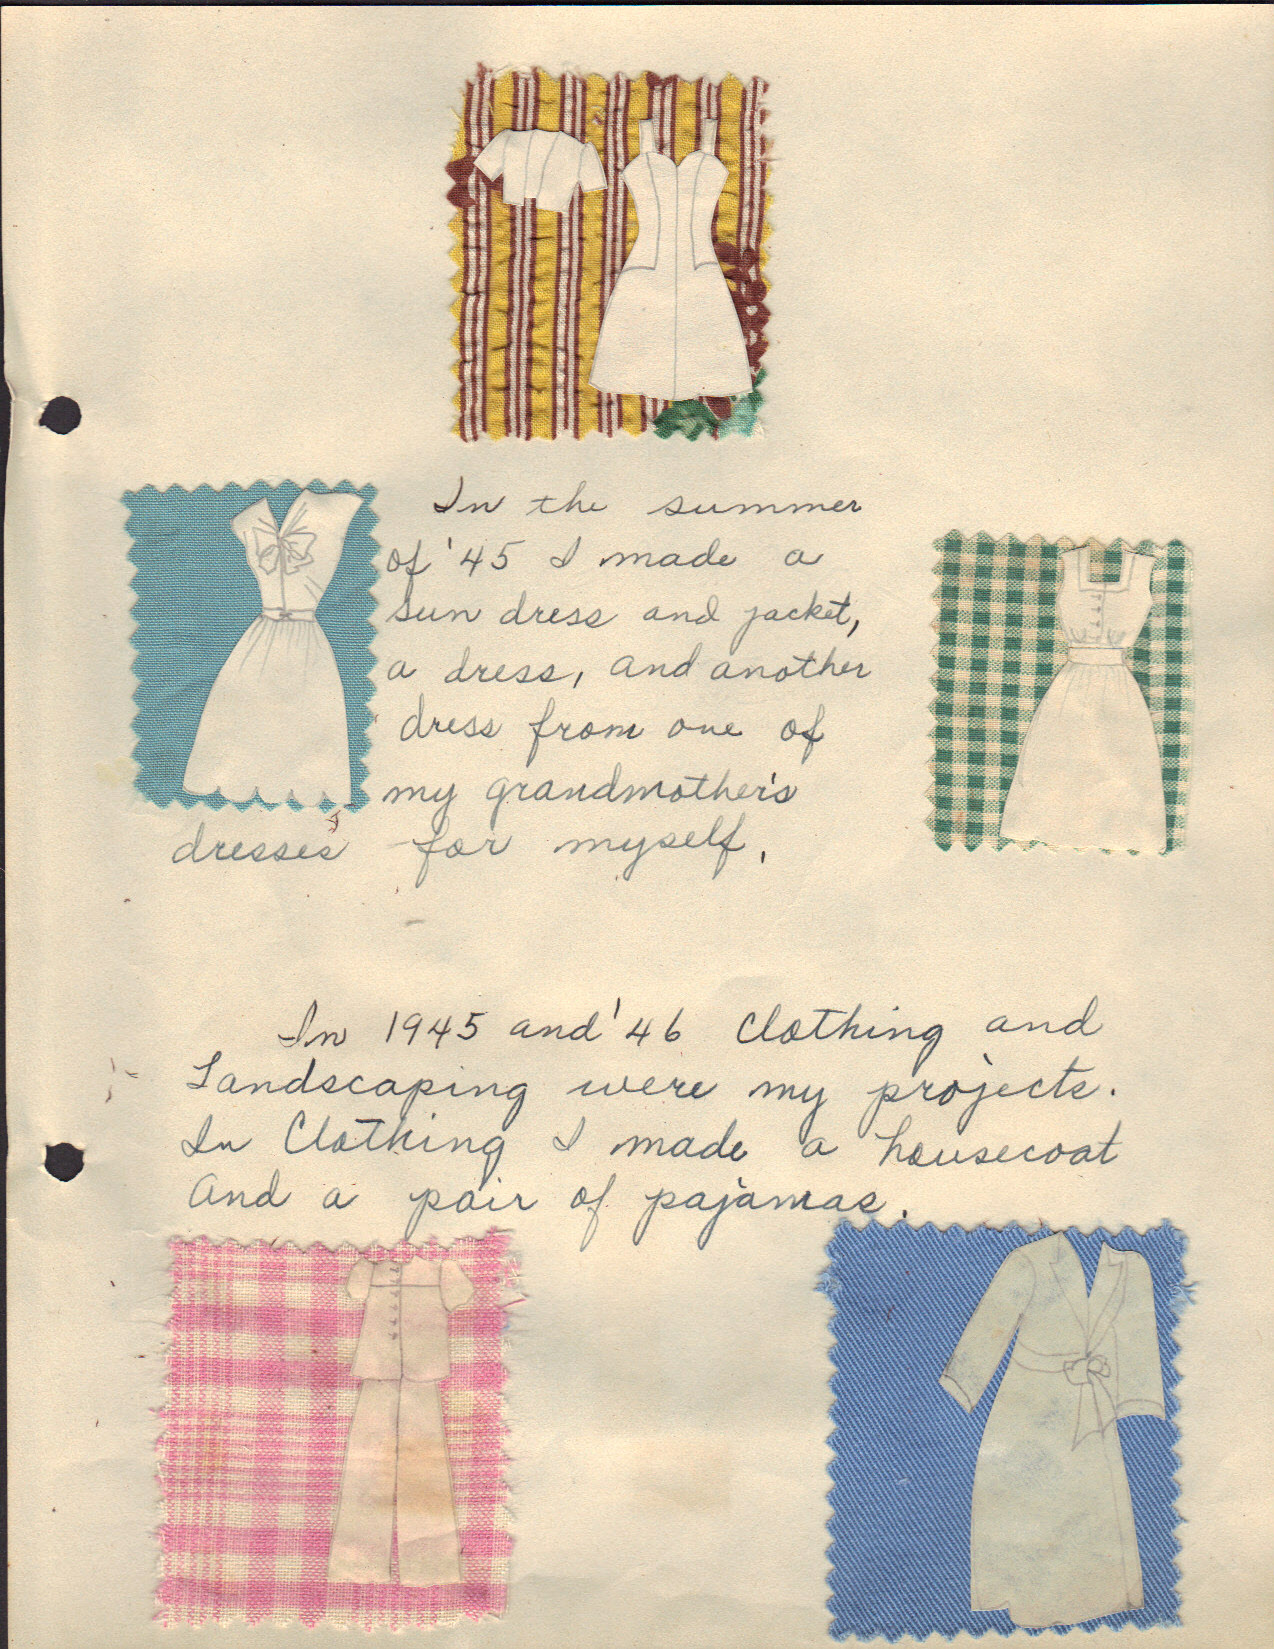 In the summer
of '45 I made a
sun dress and jacket,
a dress, and another
dress from one of
my grandmother's
dresses for myself.
In 1945 and '46 Clothing and
Landscaping were my projects.
In Clothing I made a housecoat
and a pair of pajamas.